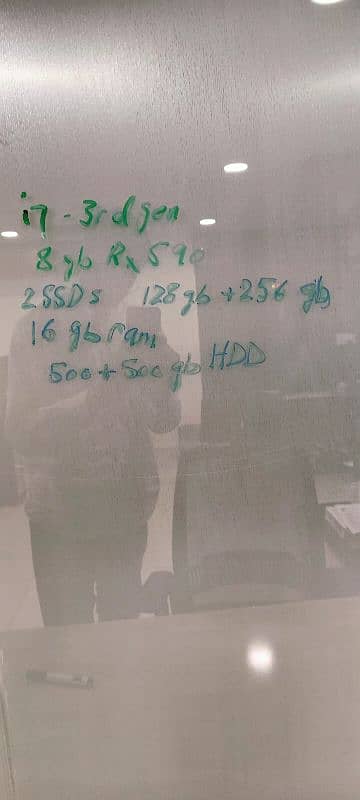 i7 - 3rd gen
8 gb Rx 590
2 SSDs 128 gb + 256 gb
16 gb ram
500 + 500 gb HDD